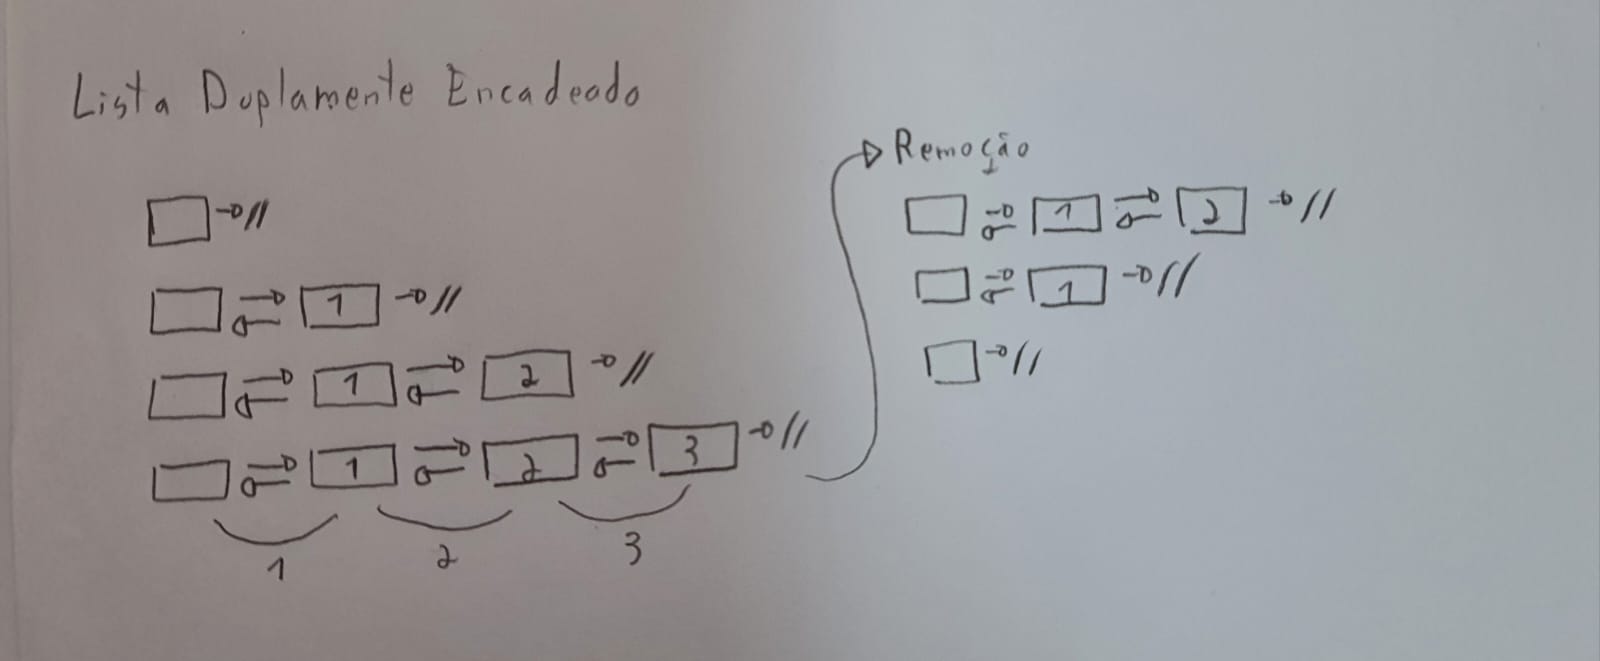 Lista Duplamente Encadeado
1
1 2
1 2 3
1 2 3
Remoção
1 2
1